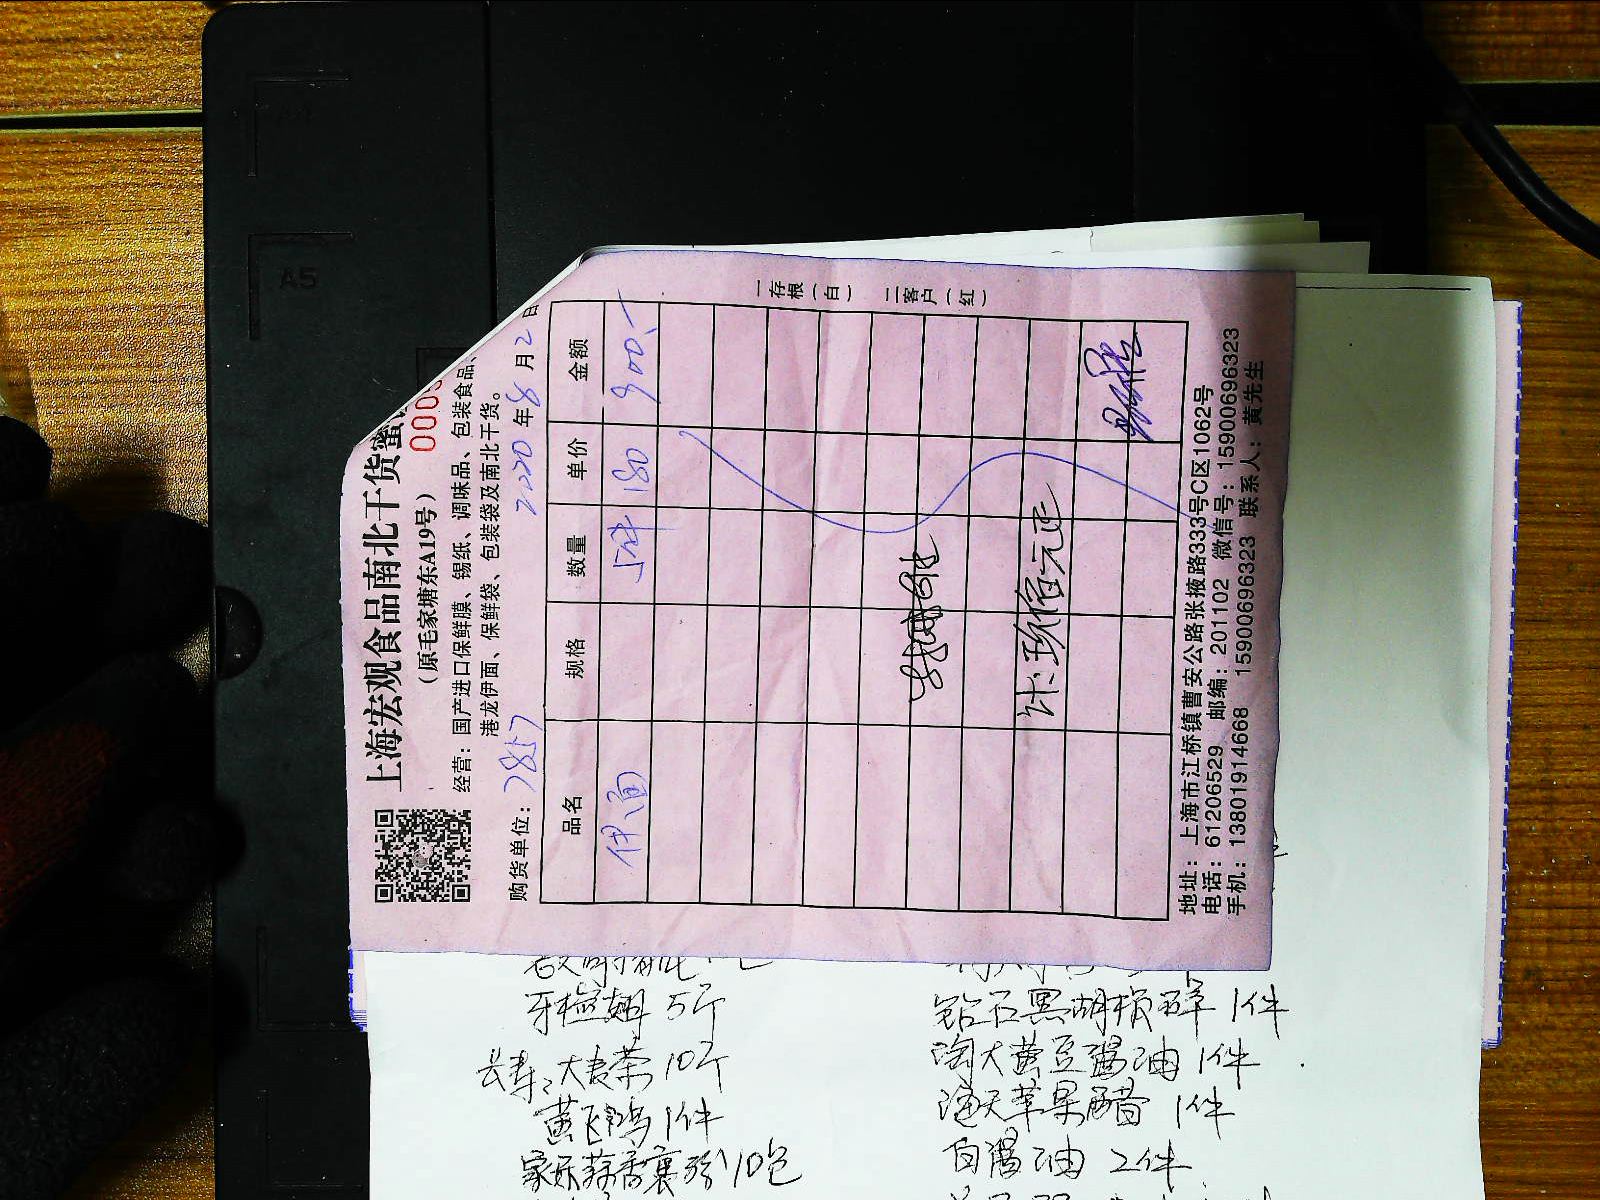 上海宏观食品南北干货蜜
（原毛家塘东A19号）
0003
经营：国产进口保鲜膜、锡纸、调味品、包装食品、
港龙伊面、保鲜袋、包装袋及南北干货。
购货单位：7857 2020年8月2日
品名 规格 数量 单价 金额
伊面 5件 180 900.-
玖佰元正
一存根（白） 二客户（红）
地址：上海市江桥镇曹安公路张掖路333号C区1062号
电话：61206529 邮编：201102 微信号：15900696323
手机：13801914668 15900696323 联系人：黄先生
5斤
大麦茶 10斤
黄飞鸿 1件
10包
钻石黑胡椒碎 1件
淘大黄豆酱油 1件
海天苹果醋 1件
白酱油 2件
A4
A5